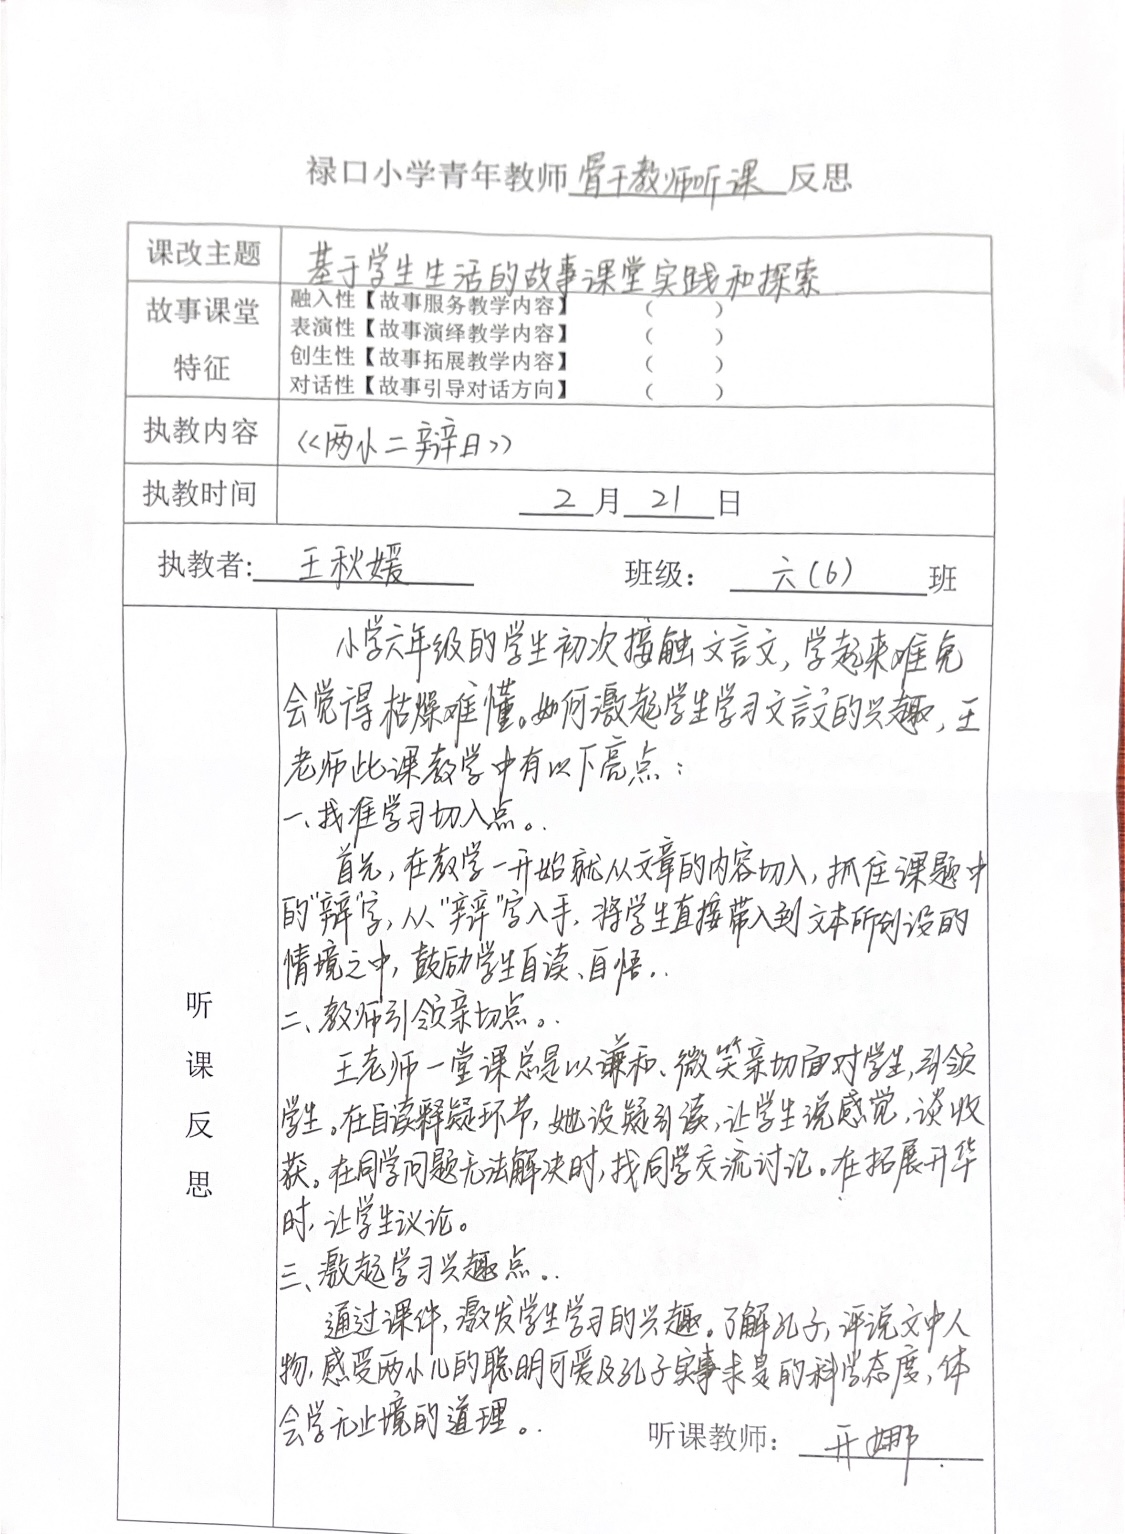 禄口小学青年教师骨干教师听课反思
课改主题 基于学生生活的故事课堂实践和探索
故事课堂特征
融入性【故事服务教学内容】 （ ）
表演性【故事演绎教学内容】 （ ）
创生性【故事拓展教学内容】 （ ）
对话性【故事引导对话方向】 （ ）
执教内容 《两小二辩日》
执教时间 2月21日
执教者: 王秋媛 班级： 六(6) 班
听课反思
小学六年级的学生初次接触文言文，学起来难免
会觉得枯燥难懂。如何激起学生学习文言文的兴趣，王
老师此课教学中有以下亮点：
一、找准学习切入点。
首先，在教学一开始就从文章的内容切入，抓住课题中
的"辩"字，从"辩"字入手，将学生直接带入到文本所创设的
情境之中，鼓励学生自读、自悟。
二、教师引领亲切点。
王老师一堂课总是以谦和、微笑亲切面对学生，引领
学生。在自读释疑环节，她设疑引读，让学生说感觉，谈收
获。在同学问题无法解决时，找同学交流讨论。在拓展升华
时，让学生议论。
三、激起学习兴趣点。
通过课件，激发学生学习的兴趣。了解孔子，评说文中人
物，感受两小儿的聪明可爱及孔子实事求是的科学态度，体
会学无止境的道理。
听课教师： 开娜